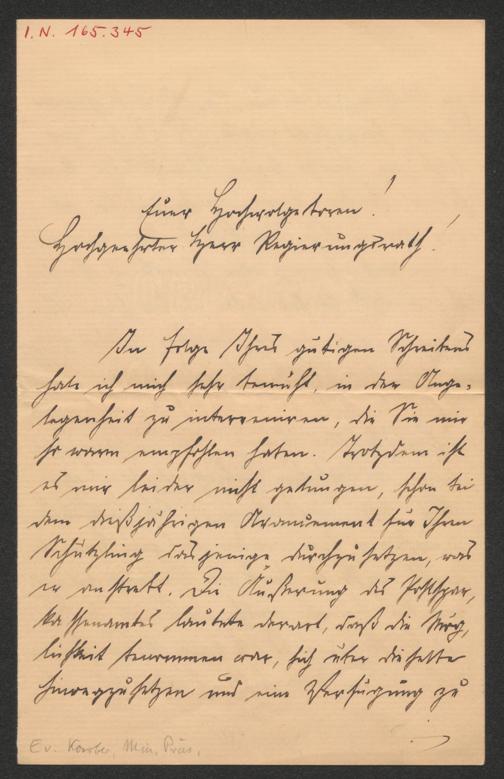 I.N. 165.345
Euer Hochwolgeboren!
Hochgeehrter Herr Regierungsrath!
In Folge Ihres gütigen Schreibens
habe ich mich sehr bemüht, in der Ange-
legenheit zu interveniren, die Sie mir
so warm empfohlen haben. Trotzdem ist
es mir leider nicht gelungen, schon bei
dem dießjährigen Avancement für Ihren
Schützling dasjenige durchzusetzen, was
er anstrebt. Die Äußerung des Postspar-
kassenamtes lautete derart, daß die Mög-
lichkeit benommen war, sich über dieselbe
hinwegzusetzen und eine Verfügung zu
E v. Koerber, Min. Präs.